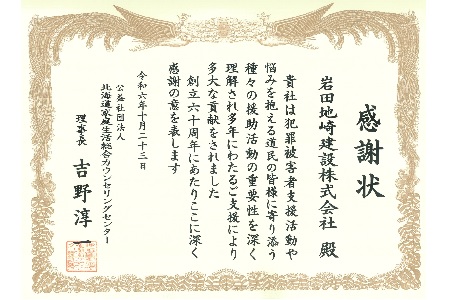 感謝状
岩田地崎建設株式会社 殿
貴社は犯罪被害者支援活動や
悩みを抱える道民の皆様に寄り添う
種々の援助活動の重要性を深く
理解され多年にわたるご支援により
多大な貢献をされました
創立六十周年にあたりここに深く
感謝の意を表します
令和六年十月二十三日
公益社団法人
北海道家庭生活総合カウンセリングセンター
理事長 吉野淳一